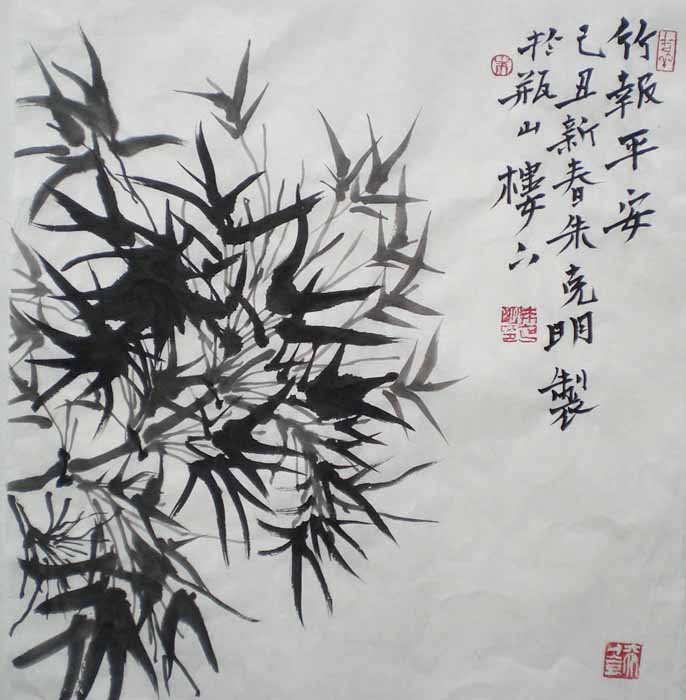 竹報平安
己丑新春朱亮明製
於瓶山樓下